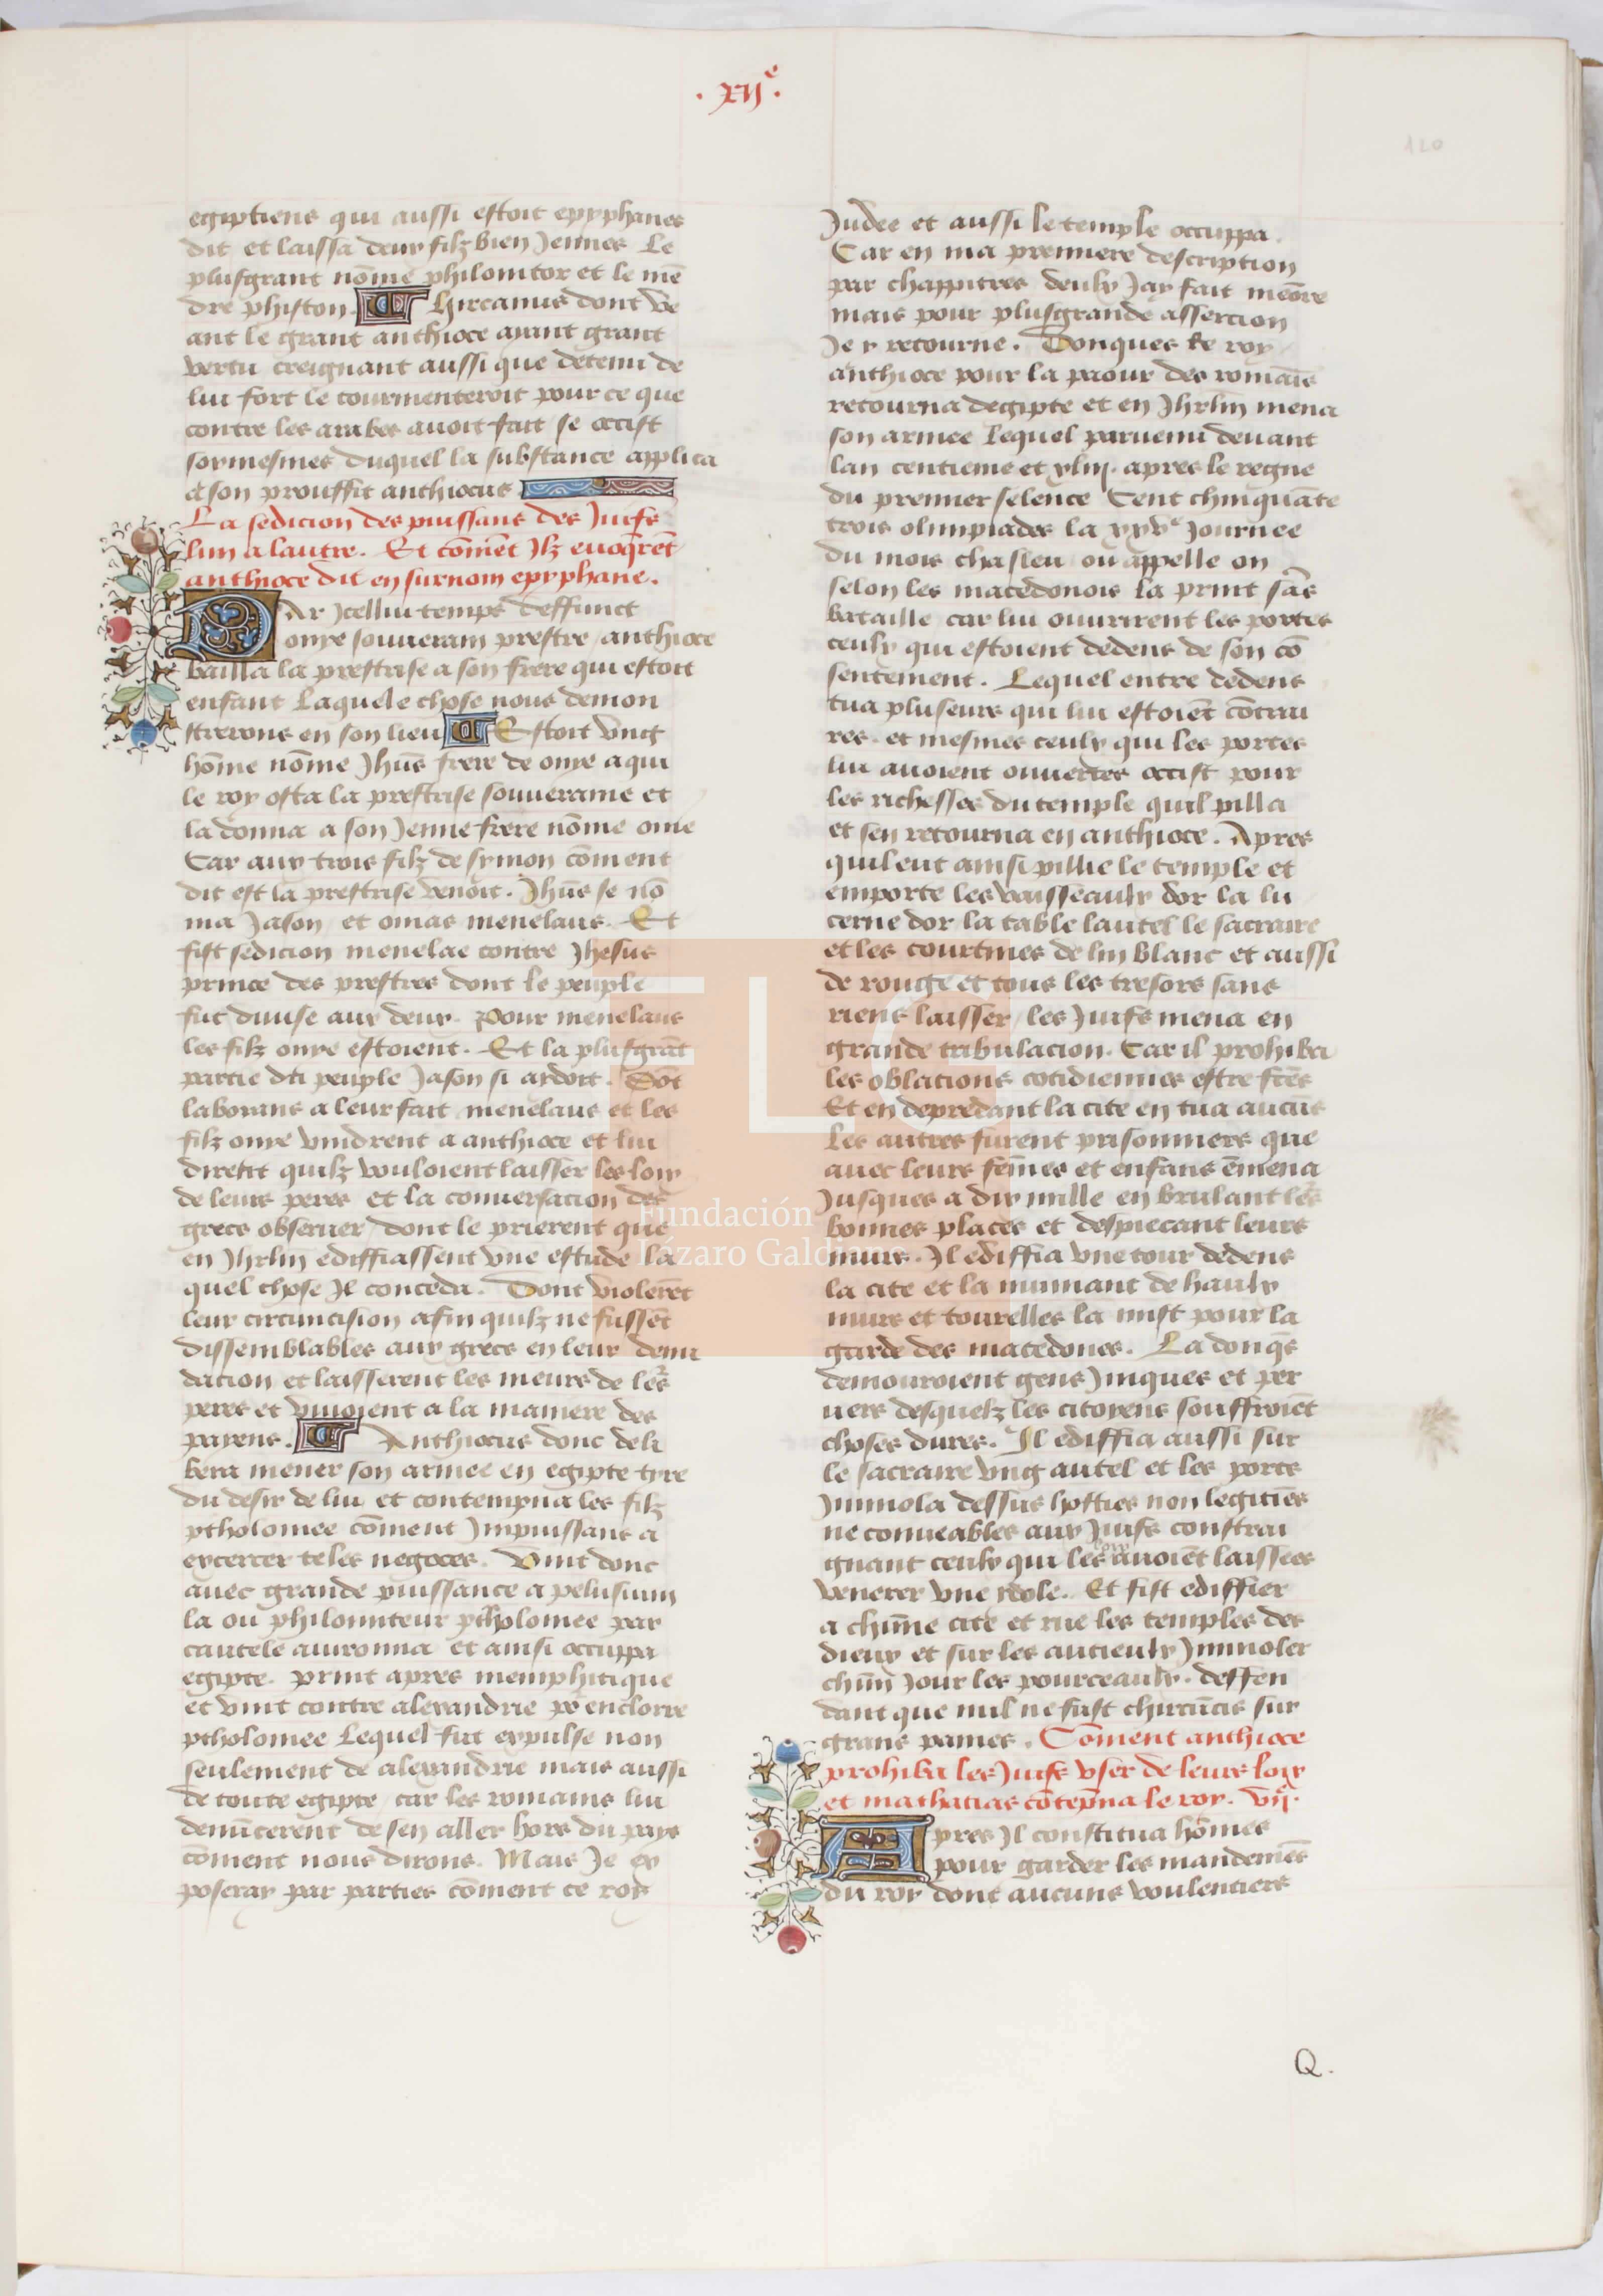 .xij.e
120
egiptiens qui aussi estoit epyphanes
dit et laissa deux filz bien Jennes Le
plusgrant nōme philomtor et le mē
dre phiston. Hircanus dont ve
ant le grant anthioce aiant grant
vertu creignant aussi que detenu de
lui fort le tourmenteroit pour ce que
contre les arabes auoit fait se occist
soymesmes duquel la substance applica
a son prouffit anthiocus
La sedicion des puissans des Juifs
lun a lautre. Et cōmēt Ilz euoq̄rēt
anthioce dit en surnom epyphane.
PAr Icellui temps deffunct
onye souuerain prestre anthioce
bailla la prestrise a son frere qui estoit
enfant Laquele chose nous demon
strerons en son lieu Estoit vng
hōme nōme Jhūs frere de onye a qui
le roy osta la prestrise souueraine et
la donna a son Jenne frere nōme onie
Car aux trois filz de symon cōment
dit est la prestrise venoit. Jhūs se nō
ma Jason et onias menelaus. Et
fist sedicion menelae contre Jhesus
prince des prestres dont le peuple
fut diuise aux deux. Pour menelaus
les filz onye estoient. Et la plusgrāt
partie du peuple Jason si ardoit. Dōt
laborans a leur fait menelaus et les
filz onye vindrent a anthioce et lui
dirent quilz vouloient laisser les loix
de leurs peres et la conuersacion des
grecs obseruer dont le prierent que
en Jhrlm ediffiassent vne estude la
quel chose Il conceda. Dont violerēt
leur circuncision afin quilz ne fussēt
dissemblables aux grecs en leur denu
dacion et laisserent les meurs de le᷑s
peres et viuoient a la maniere des
payens. Anthiocus donc deli
bera mener son armee en egipte tyre
du desir de lui et contempna les filz
ptholomee cōment Impuissans a
excercer teles negoces. Vint donc
auec grande puissance a pelusium
la ou philomiteur ptholomee par
cautele auironna et ainsi occuppa
egipte. Print apres memphitique
et vint contre alexandrie po᷑ enclorre
ptholomee Lequel fut expulse non
seulement de alexandrie mais aussi
de toute egipte car les romains lui
denūcerent de sen aller hors du pays
cōment nous dirons. Mais Je ex
poseray par parties cōment ce roy
Judee et aussi le temple occuppa.
Car en ma premiere description
par chappitres deulx Jay fait mēore
mais pour plusgrande assercion
Je y retourne. Donques ke roy
anthioce pour la paour des romaīs
retourna degipte et en Jhrlm mena
son armee Lequel paruenu deuant
lan centieme et xliij. apres le regne
du premier selence Cent chinquāte
trois olimpiades la xxve Journee
du mois chasleu ou appelle on
selon les macedonois la print sās
bataille car lui ouurirent les portes
ceulx qui estoient dedens de son cō
sentement. Lequel entre dedens
tua pluseurs qui lui estoiēt cōtrai
res. et mesmes ceulx qui les portes
lui auoient ouuertes occist pour
les richesses du temple quil pilla
et sen retourna en anthioce. Apres
quil eut ainsi pillie le temple et
emporte les vaisseaulx dor la lu
cerne dor la table lautel le sacraire
et les courtines de lin blanc et aussi
de rouge et tous les tresors sans
riens laisser les Juifs mena en
grande tribulacion. Car il prohiba
les oblations cotidiennes estre fc̄es
Et en depredant la cite en tua aucūs
Les autres furent prisonniers que
auec leurs fēmes et enfans ēmena
Jusques a dix mille en brulant le᷑s
bonnes places et despiecant leurs
murs. Il ediffia vne tour dedens
la cite et la munant de haulx
murs et tourelles la mist pour la
garde des macedones. La donq̄s
demouroient gens Iniques et per
uers desquelz les citoyens souffroiēt
choses dures. Il ediffia aussi sur
le sacraire vng autel et les porcs
Immola dessus hosties non legitiēs
ne conueables aux Juifs constrai
gnant ceulx qui les loix auoiēt laissees
venerer vne ydole. Et fist ediffier
a chūne cite et rue les temples des
dieux et sur les autieulx Immoler
chūn Jour les pourceaulx. deffen
dant que nul ne fust chircūcis sur
grans paines. Cōment anthioce
prohiba les Juifs vser de leurs loix
et mathatias cōtepna le roy. vij.
Apres Il constitua hōmes
pour garder les mandemēs
du roy dont aucuns voulentiers
Q.
FLG
Fundación
Lázaro Galdiano